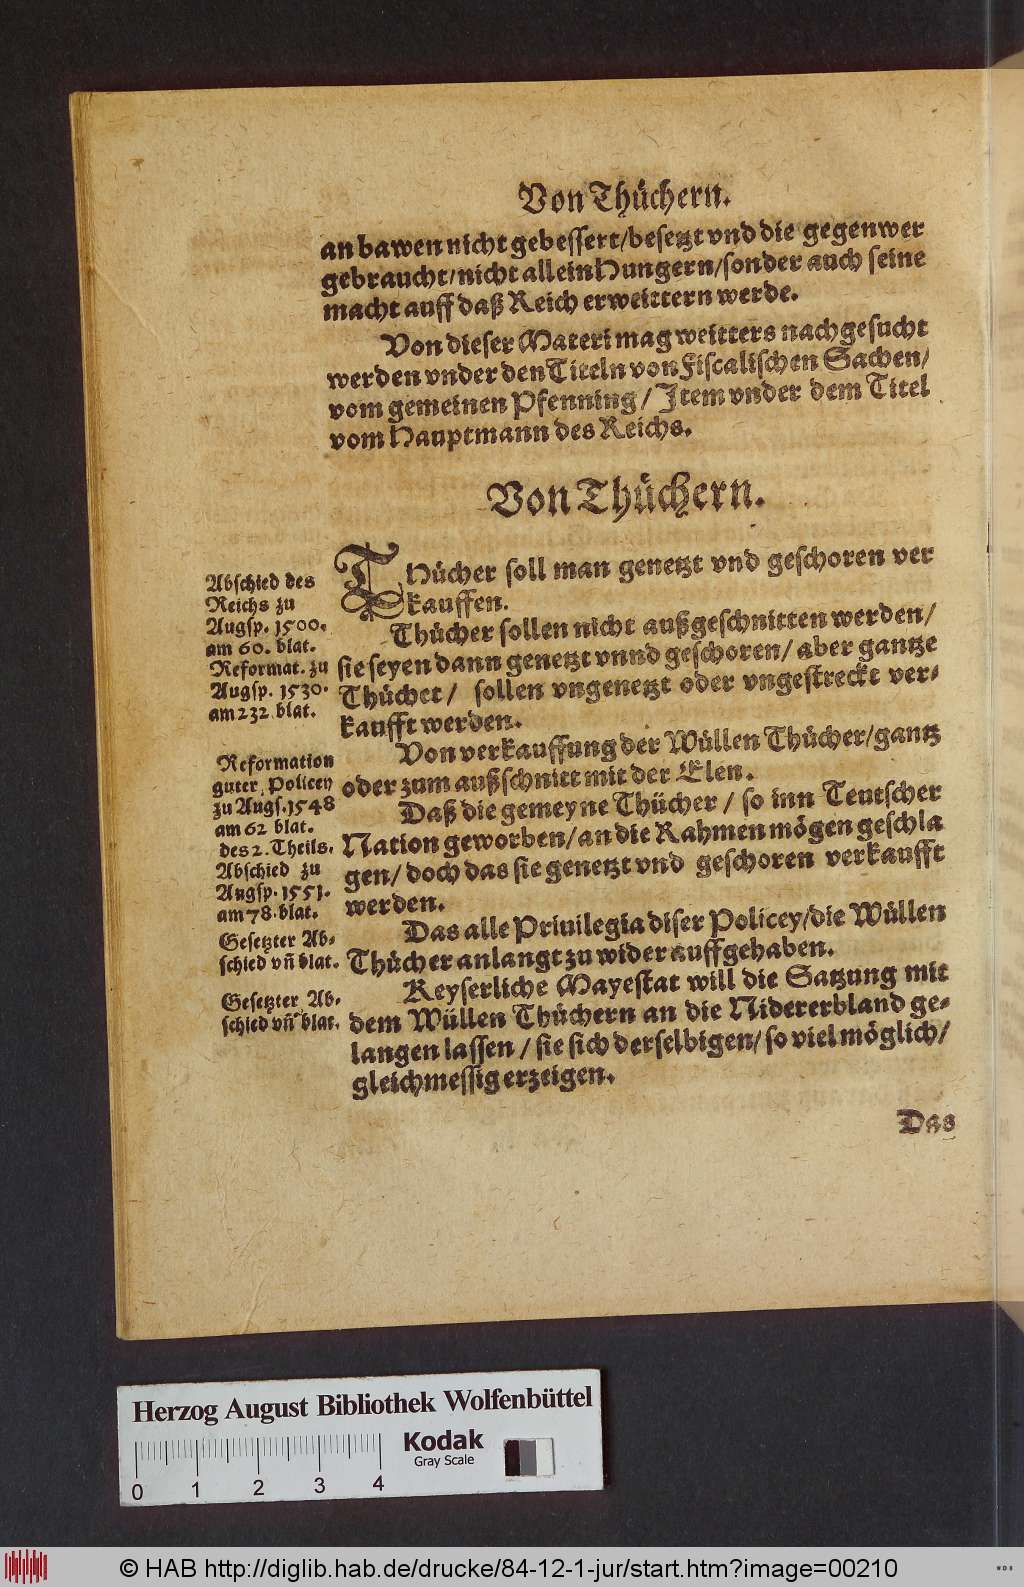 Von Thüchern.
an bawen nicht gebessert/besetzt vnd die gegenwer
gebraucht/nicht allein Hungern/sonder auch seine
macht auff daß Reich erweittern werde.
Von dieser Materi mag weitters nachgesucht
werden vnder den Titeln von Fiscalischen Sachen/
vom gemeinen Pfenning/ Item vnder dem Titel
vom Hauptmann des Reichs.
Von Thüchern.
Abschied des
Reichs zu
Augsp. 1500.
am 60. blat.
Reformat. zu
Augsp. 1530.
am 232 blat.
THücher soll man genetzt vnd geschoren ver
kauffen.
Thücher sollen nicht außgeschnitten werden/
sie seyen dann genetzt vnnd geschoren/ aber gantze
Thüchet/ sollen vngenetzt oder vngestreckt ver-
kaufft werden.
Reformation
guter Policey
zu Augs. 1548
am 62 blat.
des 2. Theils.
Abschied zu
Augsp. 1551.
am 78. blat.
Von verkauffung der Wüllen Thücher/gantz
oder zum außschnitt mit der Elen.
Daß die gemeyne Thücher / so inn Teutscher
Nation geworben/an die Rahmen mögen geschla
gen/ doch das sie genetzt vnd geschoren verkaufft
werden.
Gesetzter Ab-
schied vñ blat.
Das alle Priuilegia diser Policey/die Wüllen
Thücher anlangt zu wider auffgehaben.
Gesetzter Ab.
schied vñ blat.
Keyserliche Mayestat will die Satzung mit
dem Wüllen Thüchern an die Nidererbland ge-
langen lassen / sie sich derselbigen/ so viel möglich/
gleichmessig erzeigen.
Das
Herzog August Bibliothek Wolfenbüttel
Kodak
Gray Scale
0 1 2 3 4
© HAB http://diglib.hab.de/drucke/84-12-1-jur/start.htm?image=00210